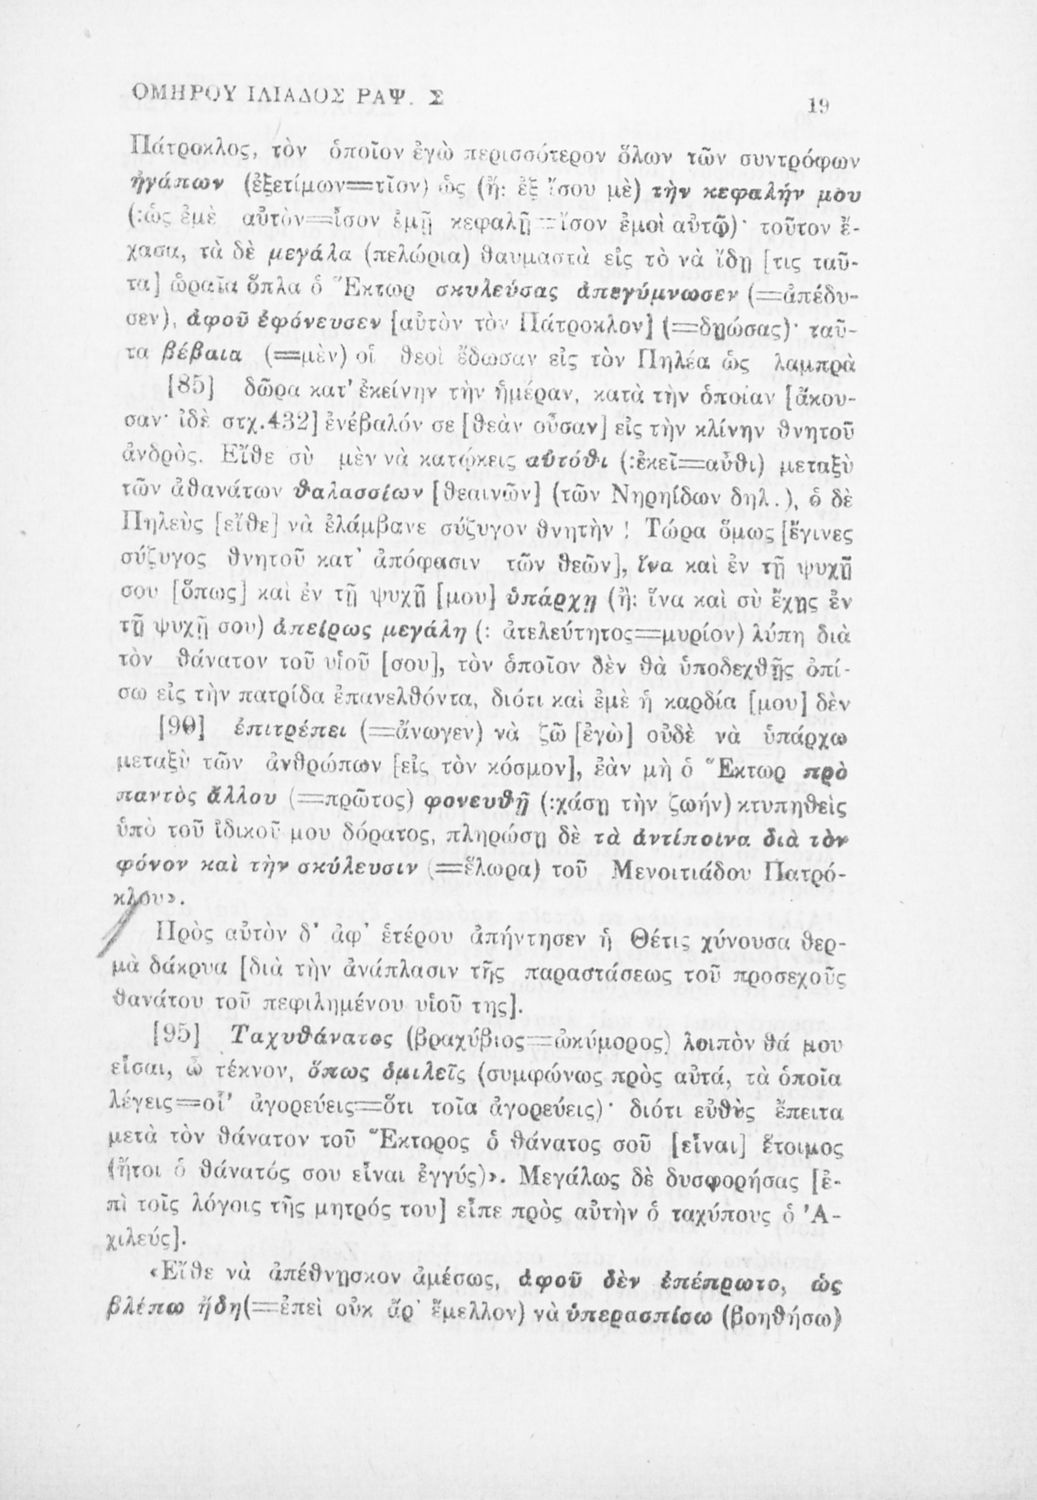 ΟΜΗΡΟΥ ΙΛΙΑΔΟΣ ΡΑΨ. Σ
19
Πάτροκλος, τὸν ὁποῖον ἐγὼ περισσότερον ὅλων τῶν συντρόφων
ἠγάπων (ἐξετίμων=τῖον) ὡς (ἤ: ἐξ ἴσου μὲ) τὴν κεφαλήν μου
(:ὡς ἐμὲ αὐτὸν=ἶσον ἐμῇ κεφαλῇ=ἴσον ἐμοὶ αὐτῷ)· τοῦτον ἔ-
χασα, τὰ δὲ μεγάλα (πελώρια) θαυμαστὰ εἰς τὸ νὰ ἴδῃ [τις ταῦ-
τα] ὡραῖα ὅπλα ὁ Ἕκτωρ σκυλεύσας ἀπεγύμνωσεν (=ἀπέδυ-
σεν), ἀφοῦ ἐφόνευσεν [αὐτὸν τὸν Πάτροκλον] (=δῃώσας)· ταῦ-
τα βέβαια (=μὲν) οἱ θεοὶ ἔδωσαν εἰς τὸν Πηλέα ὡς λαμπρὰ
[85] δῶρα κατ' ἐκείνην τὴν ἡμέραν, κατὰ τὴν ὁποίαν [ἄκου-
σαν· ἰδὲ στχ.432] ἐνέβαλόν σε [θεὰν οὖσαν] εἰς τὴν κλίνην θνητοῦ
ἀνδρὸς. Εἴθε σὺ μὲν νὰ κατῴκεις αὐτόθι (:ἐκεῖ=αὖθι) μεταξὺ
τῶν ἀθανάτων θαλασσίων [θεαινῶν] (τῶν Νηρηίδων δηλ.), ὁ δὲ
Πηλεὺς [εἴθε] νὰ ἐλάμβανε σύζυγον θνητὴν ! Τώρα ὅμως [ἔγινες
σύζυγος θνητοῦ κατ' ἀπόφασιν τῶν θεῶν], ἵνα καὶ ἐν τῇ ψυχῇ
σου [ὅπως] καὶ ἐν τῇ ψυχῇ [μου] ὑπάρχῃ (ἤ: ἵνα καὶ σὺ ἔχῃς ἐν
τῇ ψυχῇ σου) ἀπείρως μεγάλη (: ἀτελεύτητος=μυρίον) λύπη διὰ
τὸν θάνατον τοῦ υἱοῦ [σου], τὸν ὁποῖον δὲν θὰ ὑποδεχθῇς ὀπί-
σω εἰς τὴν πατρίδα ἐπανελθόντα, διότι καὶ ἐμὲ ἡ καρδία [μου] δὲν
[90] ἐπιτρέπει (=ἄνωγεν) νὰ ζῶ [ἐγὼ] οὐδὲ νὰ ὑπάρχω
μεταξὺ τῶν ἀνθρώπων [εἰς τὸν κόσμον], ἐὰν μὴ ὁ Ἕκτωρ πρὸ
παντὸς ἄλλου (=πρῶτος) φονευθῇ (:χάσῃ τὴν ζωήν) κτυπηθεὶς
ὑπὸ τοῦ ἰδικοῦ μου δόρατος, πληρώσῃ δὲ τὰ ἀντίποινα διὰ τὸν
φόνον καὶ τὴν σκύλευσιν (=ἕλωρα) τοῦ Μενοιτιάδου Πατρό-
κλου».
Πρὸς αὐτὸν δ' ἀφ' ἑτέρου ἀπήντησεν ἡ Θέτις χύνουσα θερ-
μὰ δάκρυα [διὰ τὴν ἀνάπλασιν τῆς παραστάσεως τοῦ προσεχοῦς
θανάτου τοῦ πεφιλημένου υἱοῦ της].
[95] Ταχυθάνατος (βραχύβιος=ὠκύμορος) λοιπὸν θά μου
εἶσαι, ὦ τέκνον, ὅπως ὁμιλεῖς (συμφώνως πρὸς αὐτά, τὰ ὁποῖα
λέγεις=οἷ' ἀγορεύεις=ὅτι τοῖα ἀγορεύεις)· διότι εὐθὺς ἔπειτα
μετὰ τὸν θάνατον τοῦ Ἕκτορος ὁ θάνατος σοῦ [εἶναι] ἕτοιμος
(ἤτοι ὁ θάνατός σου εἶναι ἐγγύς)». Μεγάλως δὲ δυσφορήσας [ἐ-
πὶ τοῖς λόγοις τῆς μητρός του] εἶπε πρὸς αὐτὴν ὁ ταχύπους ὁ Ἀ-
χιλεύς].
«Εἴθε νὰ ἀπέθνησκον ἀμέσως, ἀφοῦ δὲν ἐπέπρωτο, ὡς
βλέπω ἤδη(=ἐπεὶ οὐκ ἄρ' ἔμελλον) νὰ ὑπερασπίσω (βοηθήσω)